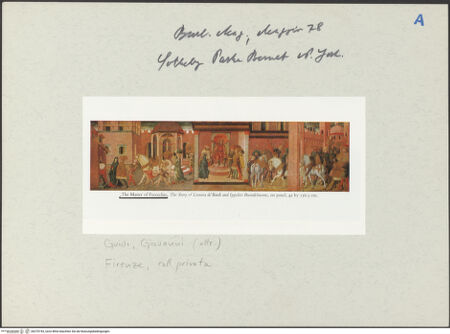 A
Burl. Mag, Maggio 78
Sotheby Parke Bernet N. York.
The Master of Fucecchio, The Story of Ginevra di Bardi and Ippolito Buondelmonte, on panel, 42 by
Guidi, Giovanni (attr.)
Firenze, coll privata